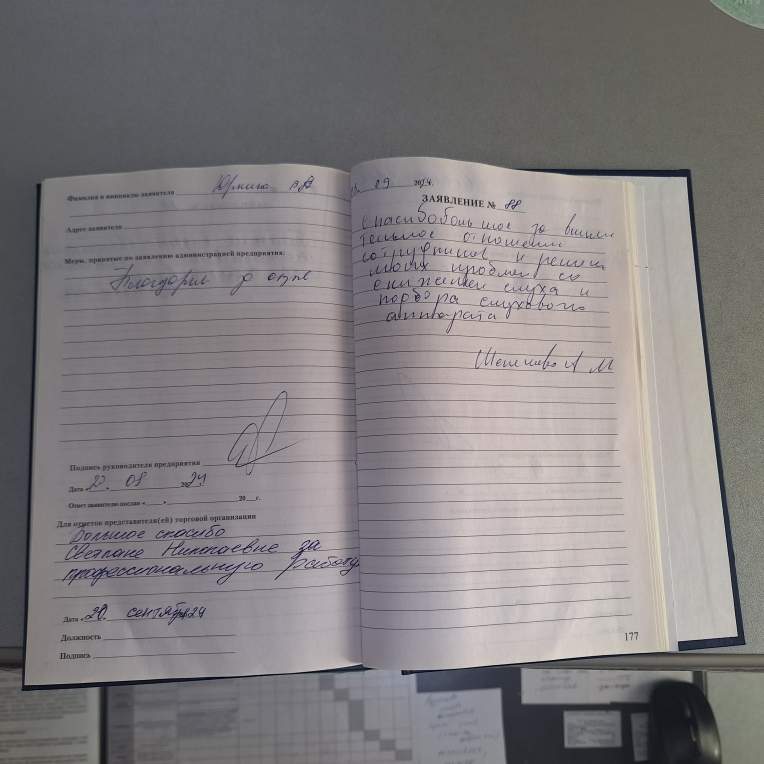 Фамилия и инициалы заявителя
Адрес заявителя
Меры, принятые по заявлению администрацией предприятия:
Подпись руководителя предприятия
Дата « 22. 08 2024
Ответ заявителю послан « » 20 г.
Для отметок представителя(ей) торговой организации
Большое спасибо
Светлане Николаевне за
профессиональную работу
Дата « 20. сентября 24
Должность
Подпись
09 2024.
ЗАЯВЛЕНИЕ № 88
Спасибо большое за внима
тельное отношение
сотрудников и решен
моих проблем со
снижением слуха и
подбора слухового
аппарата
А М
177